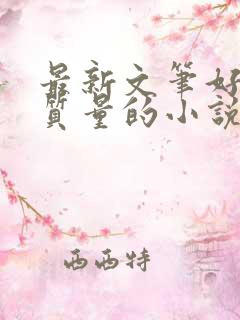 最新文筆好
質量的小說
西西特